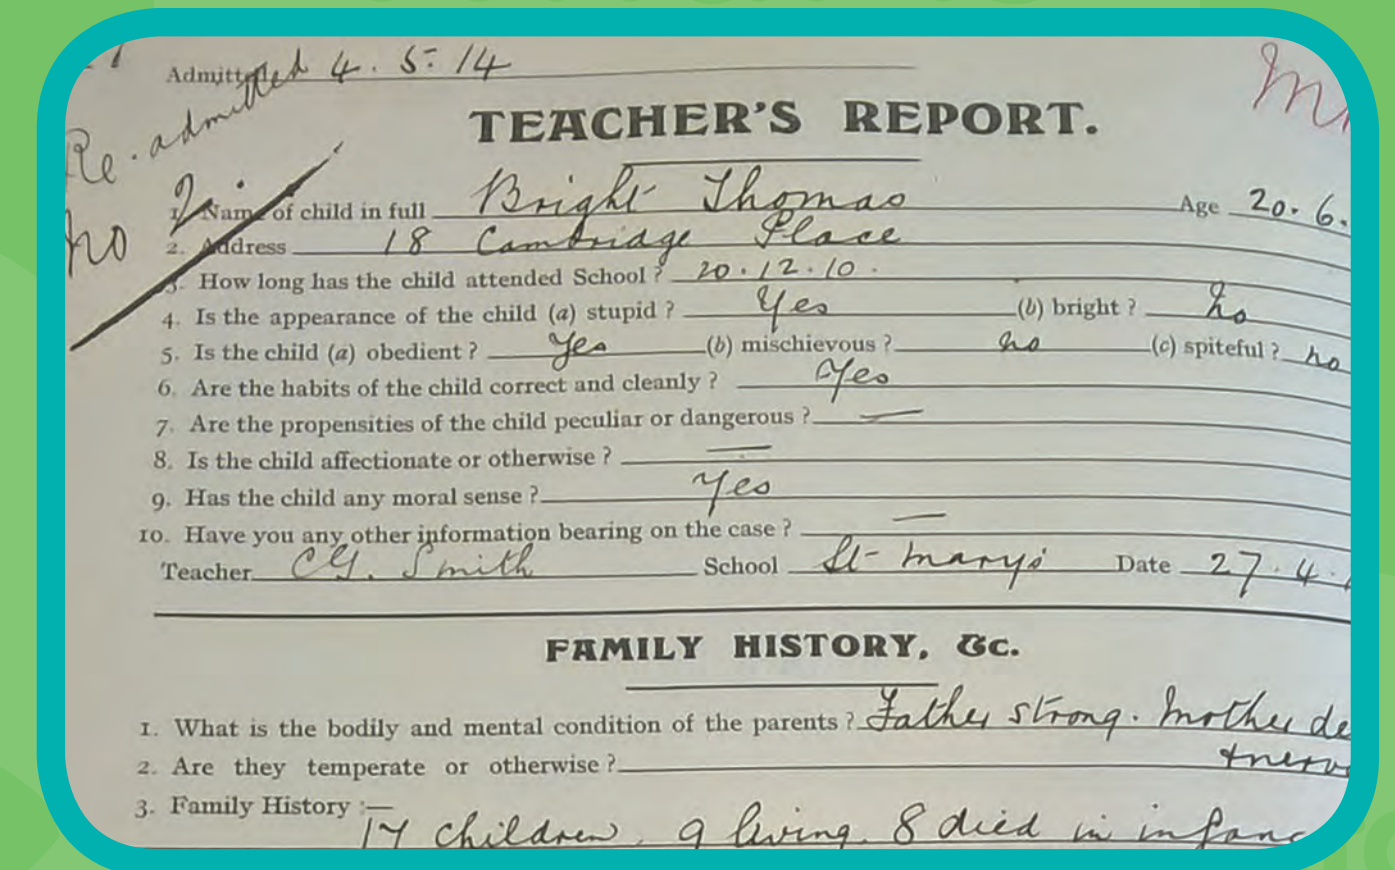 Admitted 4.5.14
Re-admitted
no
TEACHER'S REPORT.
1. Name of child in full Bright Thomas Age 20.6.
2. Address 18 Cambridge Place
3. How long has the child attended School? 20.12.10.
4. Is the appearance of the child (a) stupid? Yes (b) bright? no
5. Is the child (a) obedient? yes (b) mischievous? no (c) spiteful? no
6. Are the habits of the child correct and cleanly? Yes
7. Are the propensities of the child peculiar or dangerous? —
8. Is the child affectionate or otherwise? —
9. Has the child any moral sense? Yes
10. Have you any other information bearing on the case? —
Teacher Smith School St Mary's Date 27.4.
FAMILY HISTORY, &c.
1. What is the bodily and mental condition of the parents? Father strong. Mother de
2. Are they temperate or otherwise? + nerv
3. Family History :—
17 children, 9 living. 8 died in infanc